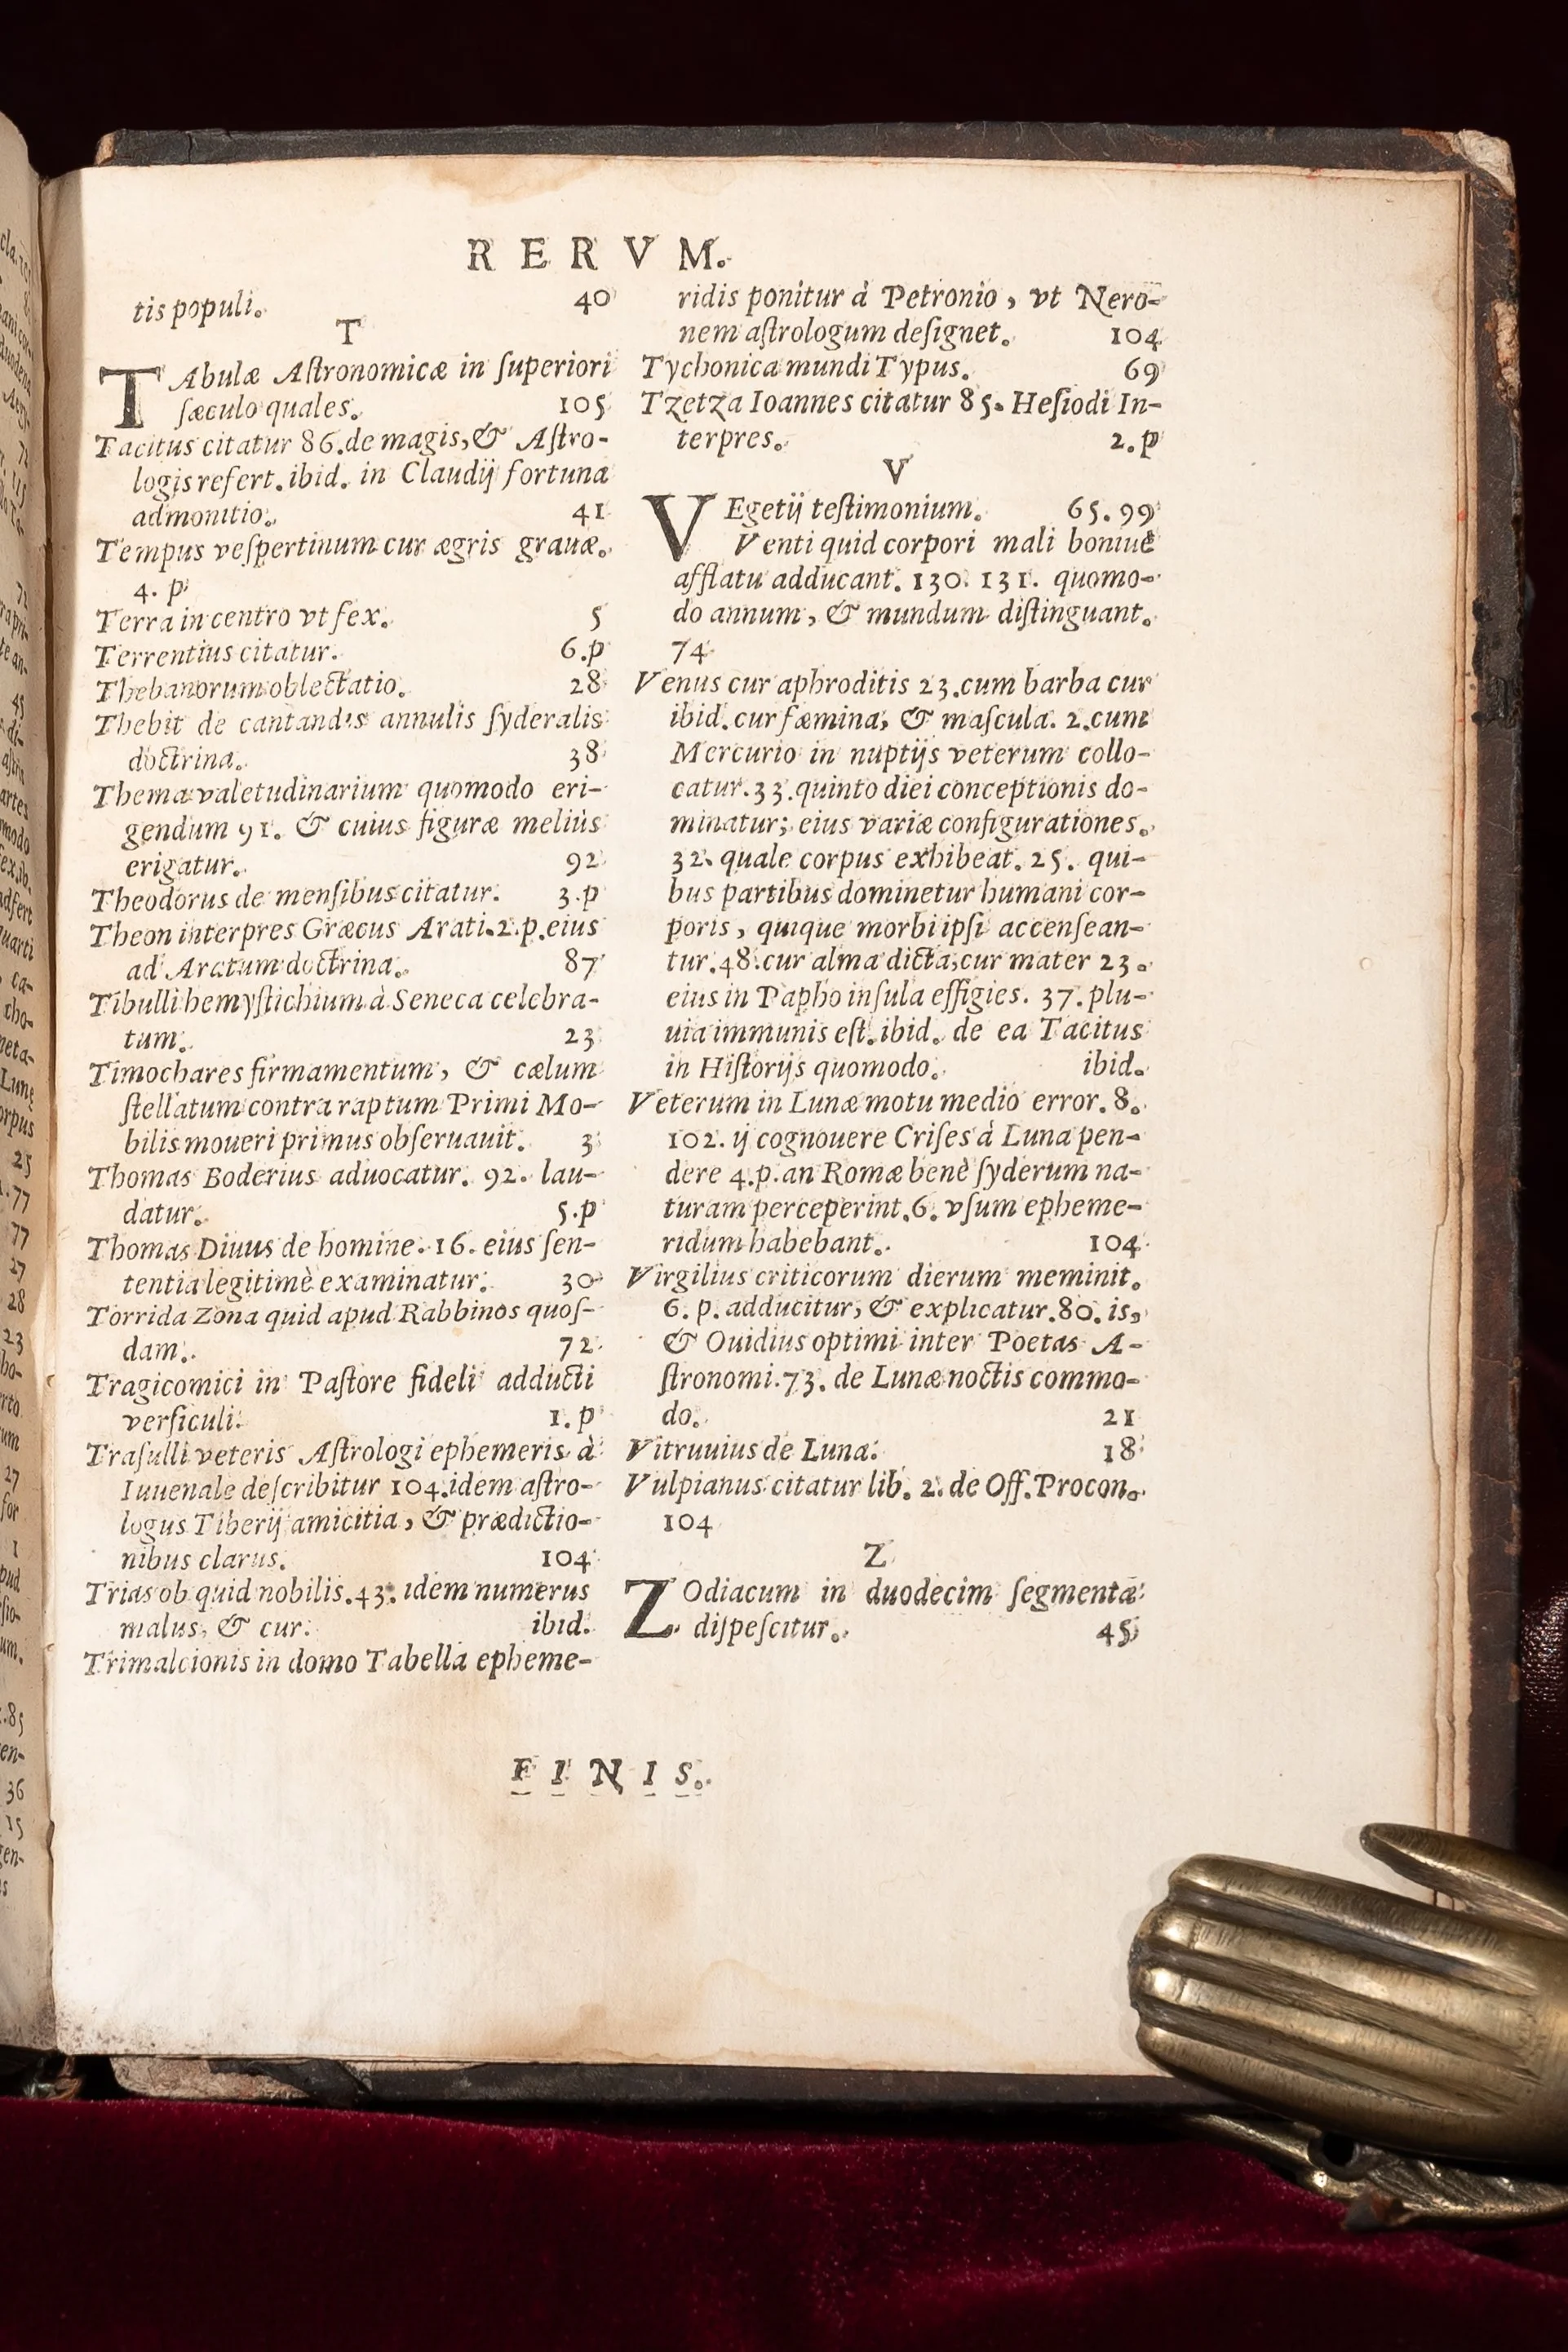 RERVM.
tis populi. 40
T
TAbulæ Aſtronomicæ in ſuperiori
ſæculo quales. 105
Tacitus citatur 86. de magis, & Aſtro-
logis refert. ibid. in Claudij fortuna
admonitio. 41
Tempus veſpertinum cur ægris grauæ.
4. p
Terra in centro vt fex. 5
Terrentius citatur. 6.p
Thebanorum oblectatio. 28
Thebit de cantandis annulis ſyderalis
doctrina. 38
Thema valetudinarium quomodo eri-
gendum 91. & cuius figuræ meliùs
erigatur. 92
Theodorus de menſibus citatur. 3.p
Theon interpres Græcus Arati. 2.p. eius
ad Aratum doctrina. 87
Tibulli hemyſtichium à Seneca celebra-
tum. 23
Timochares firmamentum, & cælum
ſtellatum contra raptum Primi Mo-
bilis moueri primus obſeruauit. 3
Thomas Boderius aduocatur. 92. lau-
datur. 5.p
Thomas Diuus de homine. 16. eius ſen-
tentia legitimè examinatur. 30
Torrida Zona quid apud Rabbinos quoſ-
dam. 72
Tragicomici in Paſtore fideli adducti
verſiculi. 1.p
Traſulli veteris Aſtrologi ephemeris à
Iuuenale deſcribitur 104. idem aſtro-
logus Tiberij amicitia, & prædictio-
nibus clarus. 104
Trias ob quid nobilis. 43. idem numerus
malus, & cur. ibid.
Trimalcionis in domo Tabella epheme-
ridis ponitur à Petronio, vt Nero-
nem aſtrologum deſignet. 104
Tychonica mundi Typus. 69
Tzetza Ioannes citatur 85. Heſiodi In-
terpres. 2.p
V
VEgetij teſtimonium. 65. 99
Venti quid corpori mali boniuè
afflatu adducant. 130. 131. quomo-
do annum, & mundum diſtinguant.
74
Venus cur aphroditis 23. cum barba cur
ibid. cur fæmina, & maſcula. 2. cum
Mercurio in nuptijs veterum collo-
catur. 33. quinto diei conceptionis do-
minatur; eius variæ configurationes.
32. quale corpus exhibeat. 25. qui-
bus partibus dominetur humani cor-
poris, quique morbi ipſi accenſean-
tur. 48. cur alma dicta, cur mater 23.
eius in Papho inſula effigies. 37. plu-
uia immunis eſt. ibid. de ea Tacitus
in Hiſtorijs quomodo. ibid.
Veterum in Lunæ motu medio error. 8.
102. ij cognouere Criſes à Luna pen-
dere 4.p. an Romæ benè ſyderum na-
turam perceperint. 6. vſum epheme-
ridum habebant. 104
Virgilius criticorum dierum meminit.
6. p. adducitur, & explicatur. 80. is,
& Ouidius optimi inter Poetas A-
ſtronomi. 73. de Lunæ noctis commo-
do. 21
Vitruuius de Luna. 18
Vulpianus citatur lib. 2. de Off. Procon.
104
Z
ZOdiacum in duodecim ſegmenta
diſpeſcitur. 45
FINIS.